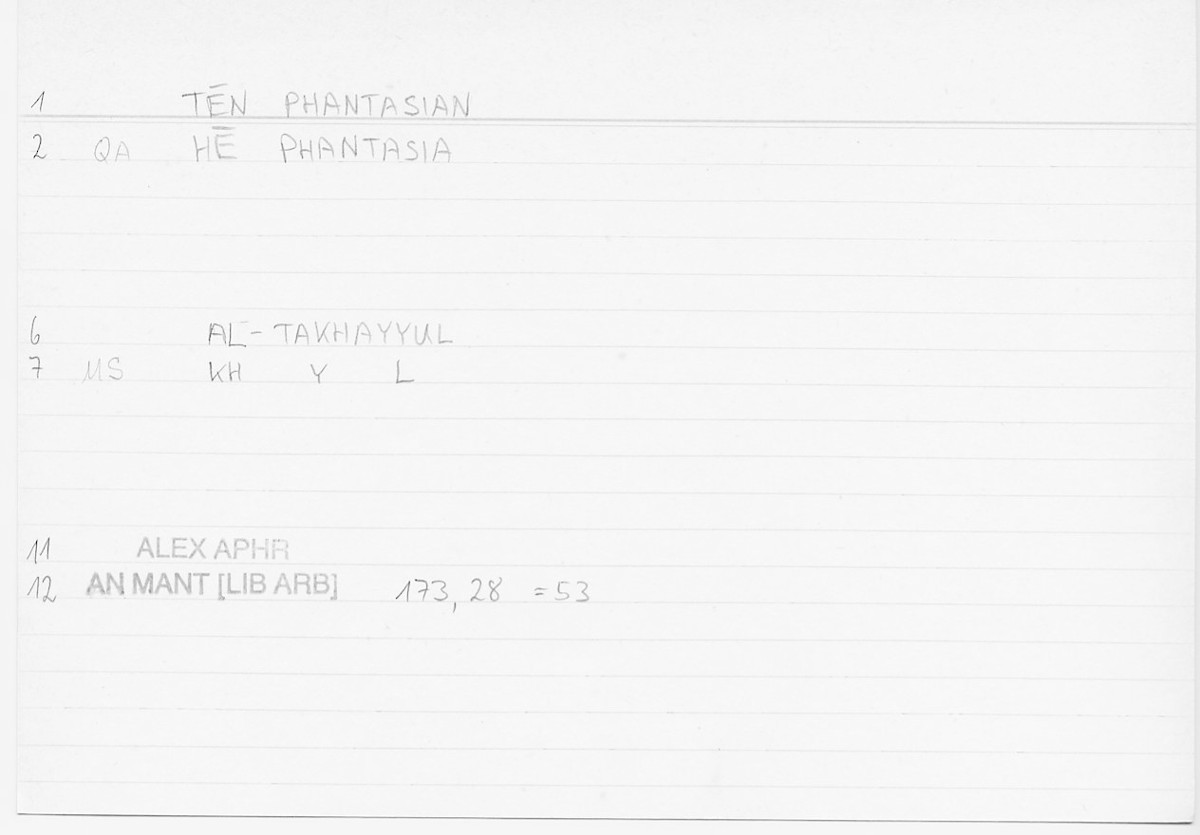 1 TĒN PHANTASIAN
2 QA HĒ PHANTASIA
6 AL-TAKHAYYUL
7 MS KH Y L
11 ALEX APHR
12 AN MANT [LIB ARB] 173, 28 =53